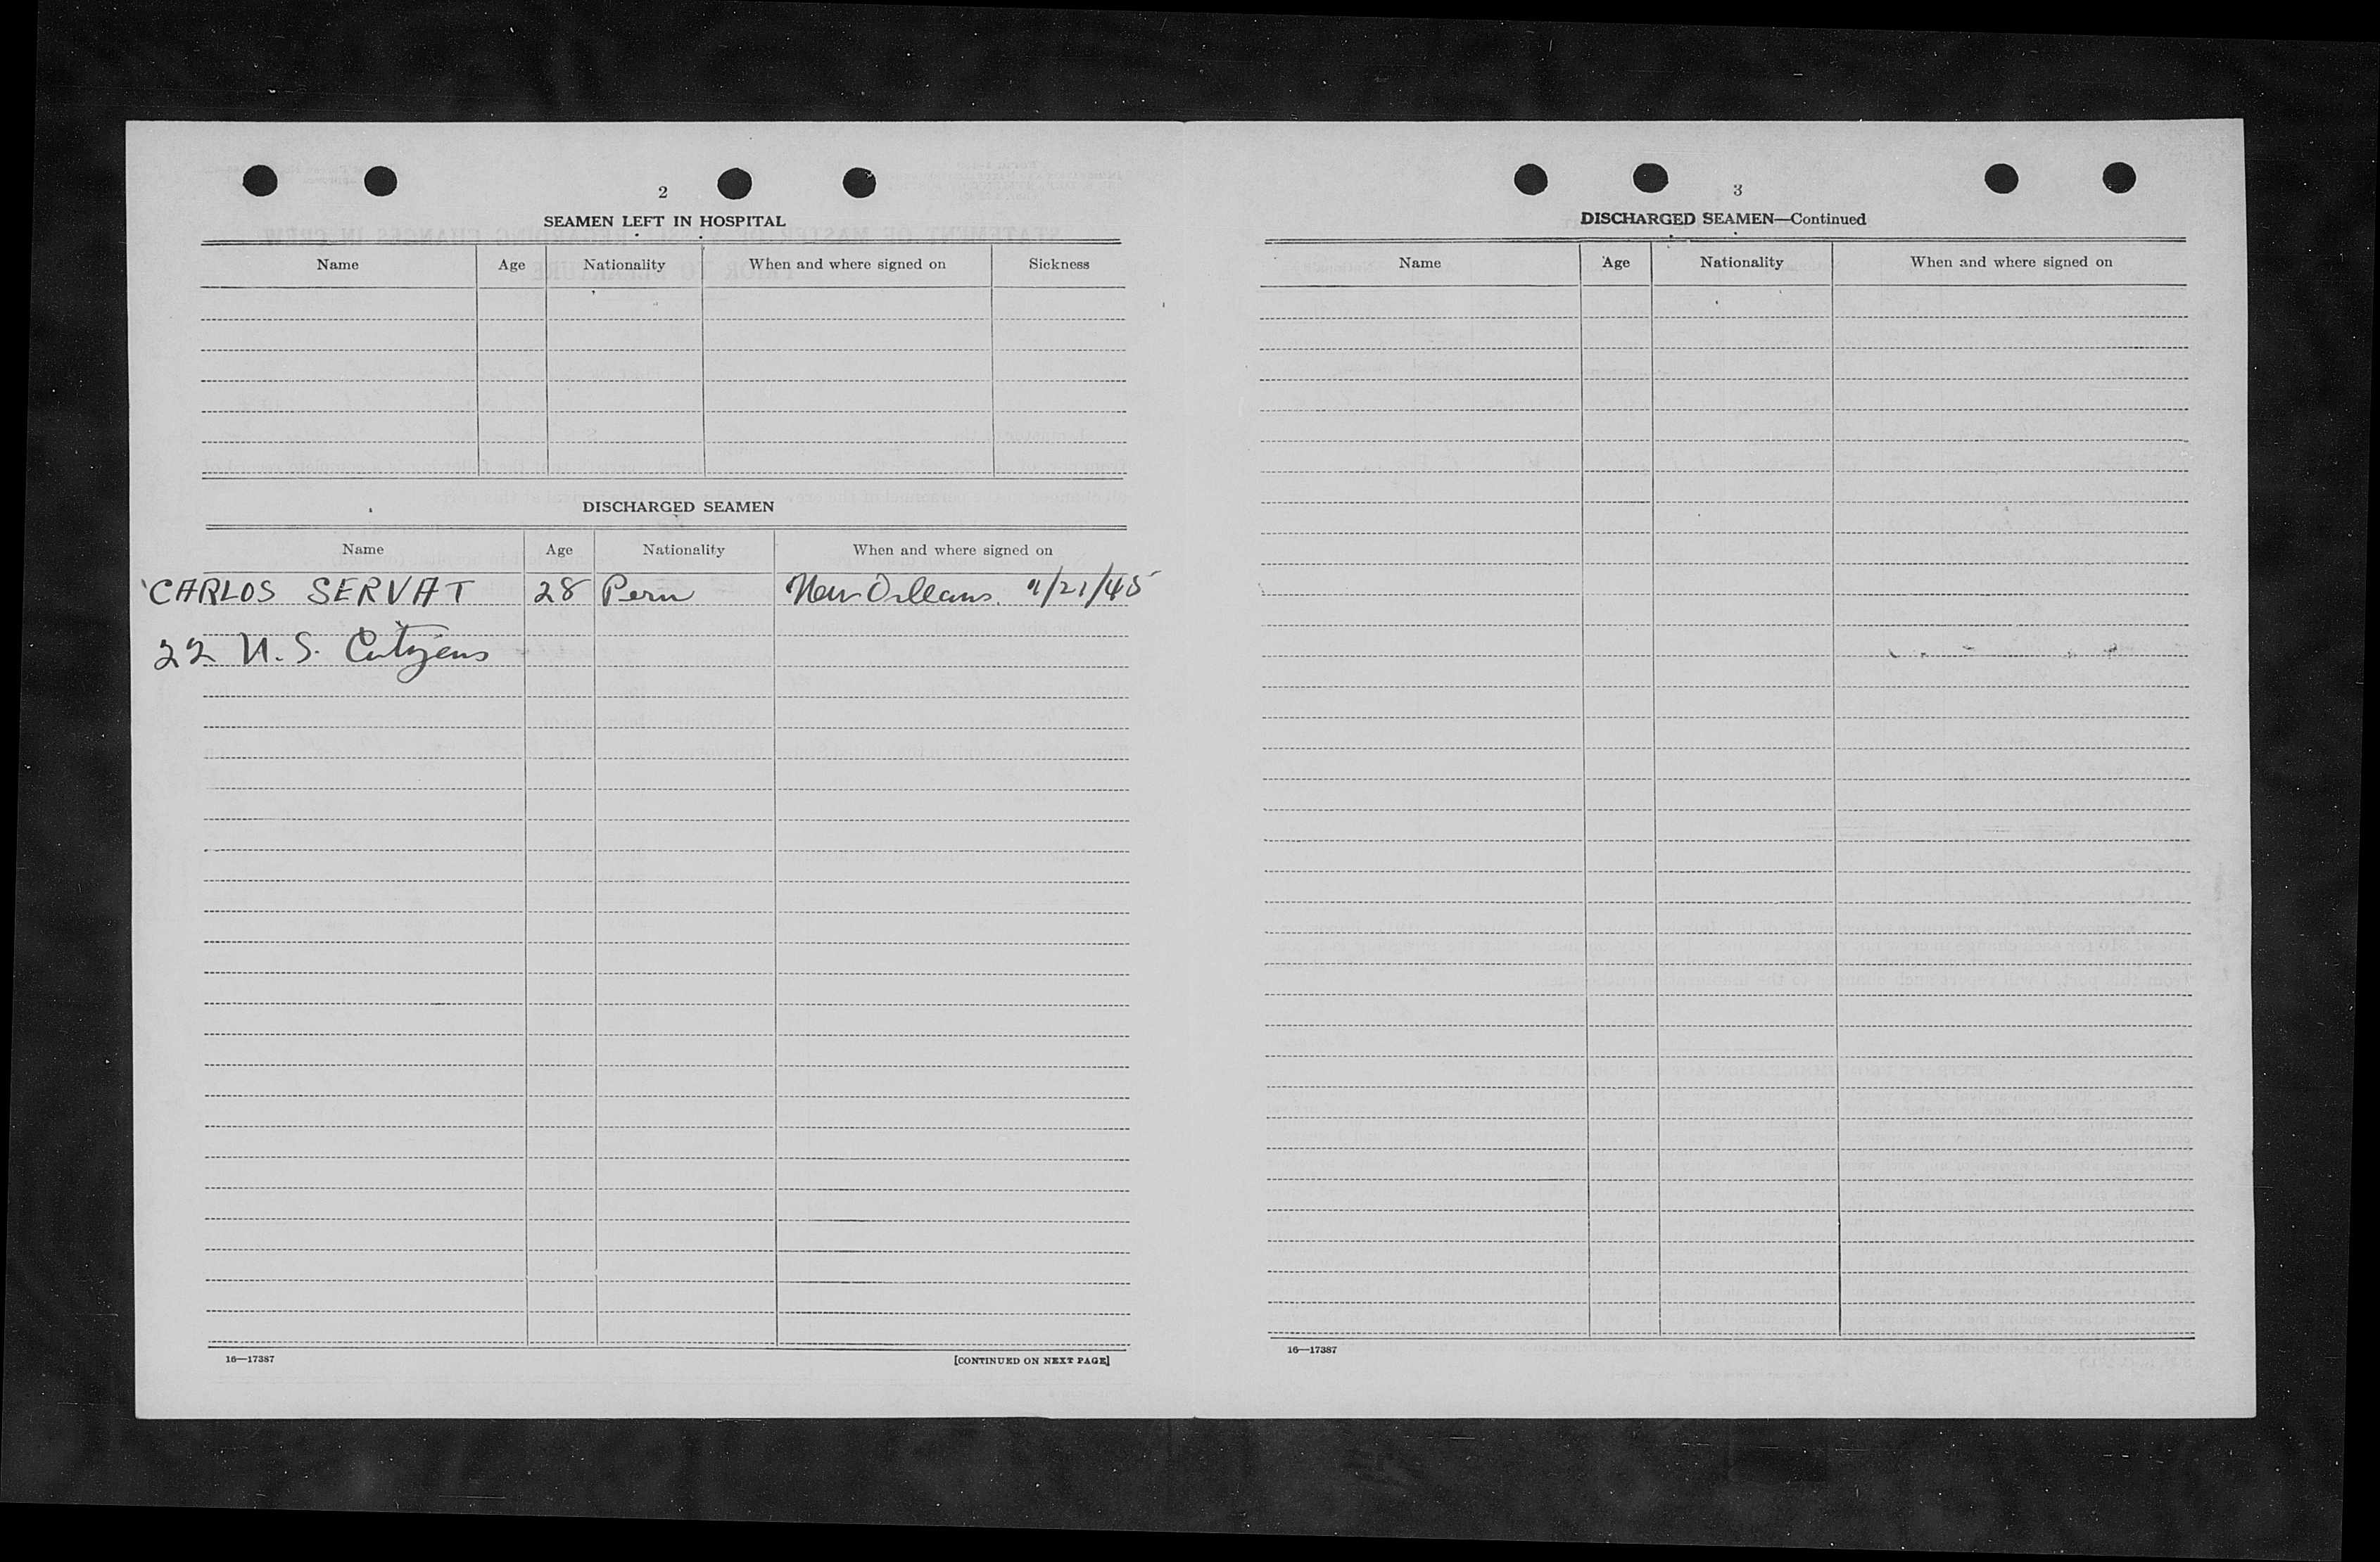 2
SEAMEN LEFT IN HOSPITAL
Name Age Nationality When and where signed on Sickness
DISCHARGED SEAMEN
Name Age Nationality When and where signed on
CARLOS SERVAT 28 Peru New Orleans
22 U.S. Citizens
16—17387 [CONTINUED ON NEXT PAGE]
3
DISCHARGED SEAMEN—Continued
Name Age Nationality When and where signed on
16—17387